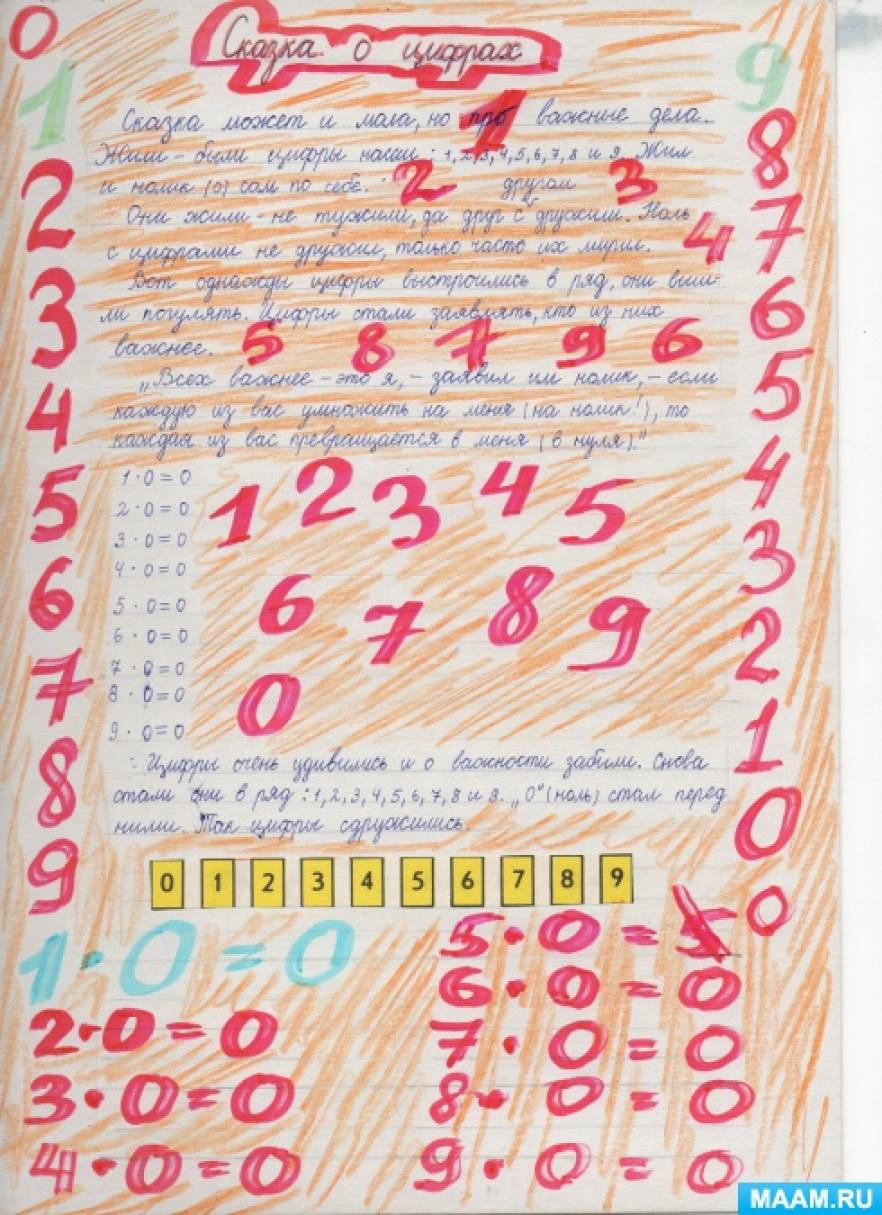 0
Сказка о цифрах
1
9
Сказка может и мала, но про важные дела.
1
Жили-были цифры наши: 1,2,3,4,5,6,7,8 и 9. Жил
и нолик (0) сам по себе.
2
другом
3
Они жили-не тужили, да друг с дружили. Ноль
с цифрами не дружил, только часто их мирил.
4
Вот однажды цифры выстроились в ряд, они выш-
ли погулять. Цифры стали заявлять, кто из них
важнее.
5 8 7 9 6
„Всех важнее - это я, - заявил им нолик, - если
каждую из вас умножить на меня (на нолик!), то
каждая из вас превращается в меня (в нуля)."
1 · 0 = 0
2 · 0 = 0
3 · 0 = 0
4 · 0 = 0
5 · 0 = 0
6 · 0 = 0
7 · 0 = 0
8 · 0 = 0
9 · 0 = 0
1 2 3 4 5
6 7 8 9
0
Цифры очень удивились и о важности забыли. Снова
стали они в ряд: 1,2,3,4,5,6,7,8 и 9. „0" (ноль) стал перед
ними. Так цифры сдружились.
2
3
4
5
6
7
8
9
8
7
6
5
4
3
2
1
0
0
0 1 2 3 4 5 6 7 8 9
1 · 0 = 0
2 · 0 = 0
3 · 0 = 0
4 · 0 = 0
5 · 0 = 5
6 · 0 = 0
7 · 0 = 0
8 · 0 = 0
9 · 0 = 0
MAAM.RU